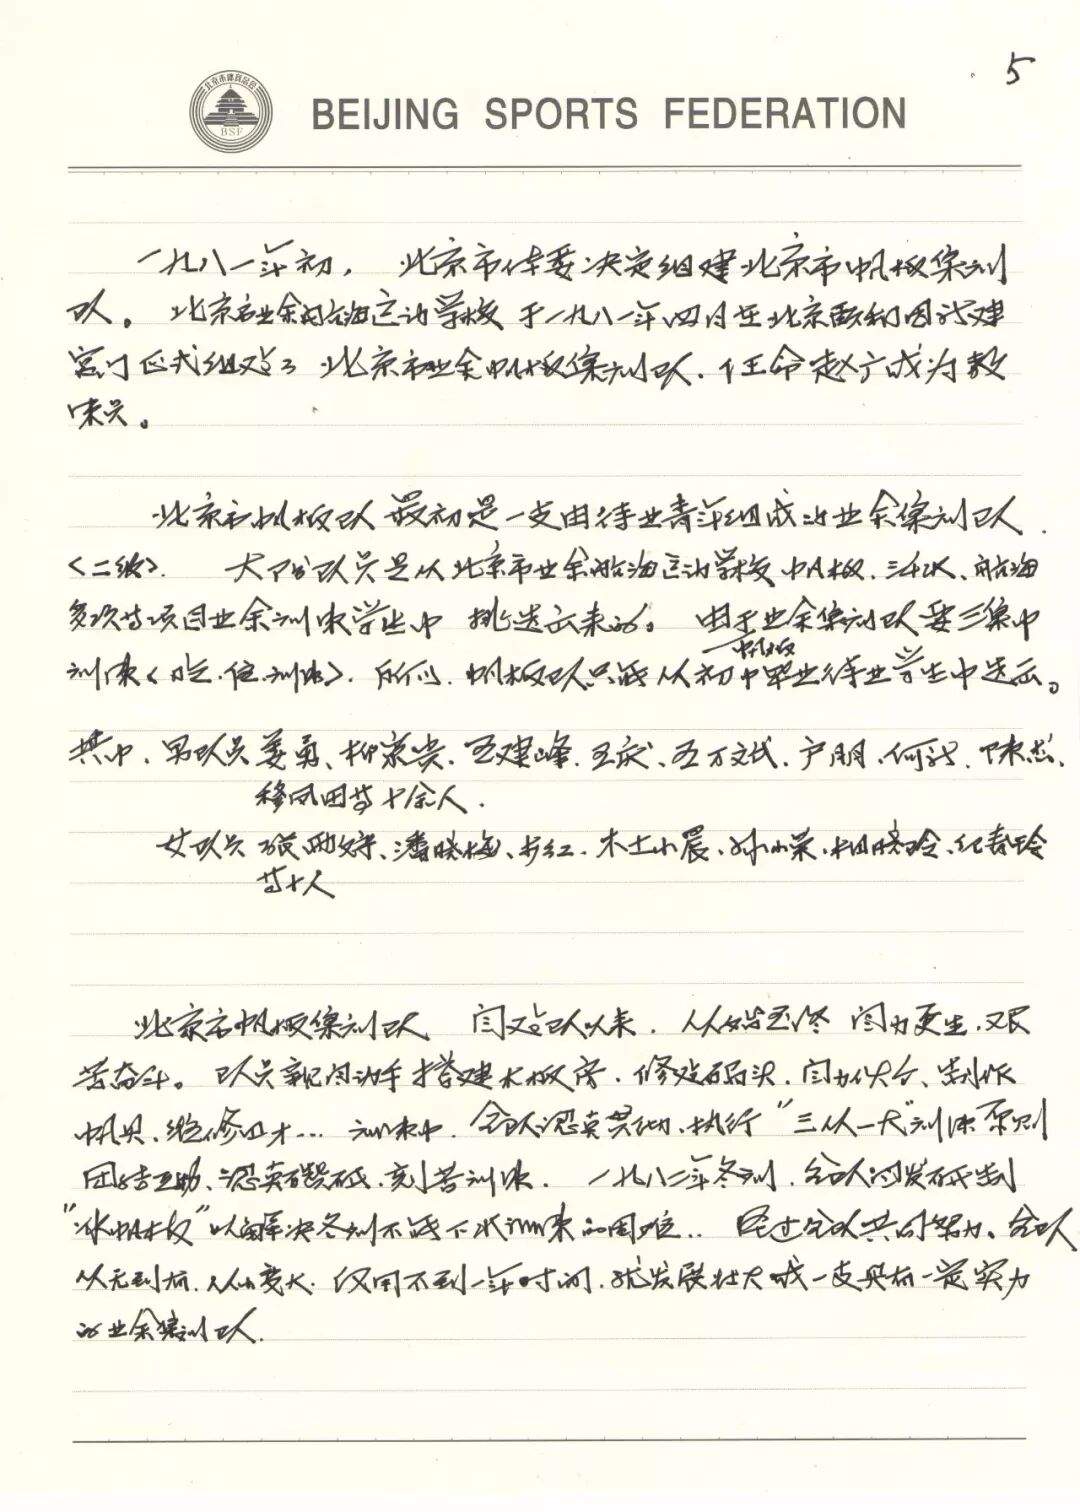 5
北京市体育总会
BSF
BEIJING SPORTS FEDERATION
一九八一年初，北京市体委决定组建北京市帆板集训
队。北京市业余航海运动学校于一九八一年四月在北京颐和园新建
宫门正式组建了北京市业余帆板集训队，任命赵广成为教
练员。
北京市帆板队最初是一支由待业青年组成的业余集训队
〈二级〉. 大部分队员是从北京市业余航海运动学校帆板、三千米、航海
多项等项目业余训练学生中挑选出来的。由于业余集训队要三集中
训练〈吃、住、训练〉，所以，帆板队只能从初中毕业待业学生中选出。
帆板
其中，男队员姜勇、柳京贵、王建峰、王庆、王万斌、卢朋、何，陈杰、
移风田等十余人.
女队员 张雨婷、潘晓梅、红、木土小晨、孙小荣、相晓玲、纪春玲
等十人
北京市帆板集训队自建队以来，从始至终自力更生，艰
苦奋斗。队员亲自动手搭建木板房，修建码头，自力、制作
帆具、维修…训练中，全队认真贯彻、执行“三从一大”训练原则
团结互助、认真，刻苦训练．一九八二年冬训，全队研发研制
“冰帆板”以解决冬训不能下水训练的困难..经过全队共同努力，全队
从无到有，从小变大．仅用不到一年时间，就发展壮大成一支具有一定实力
的业余集训队.